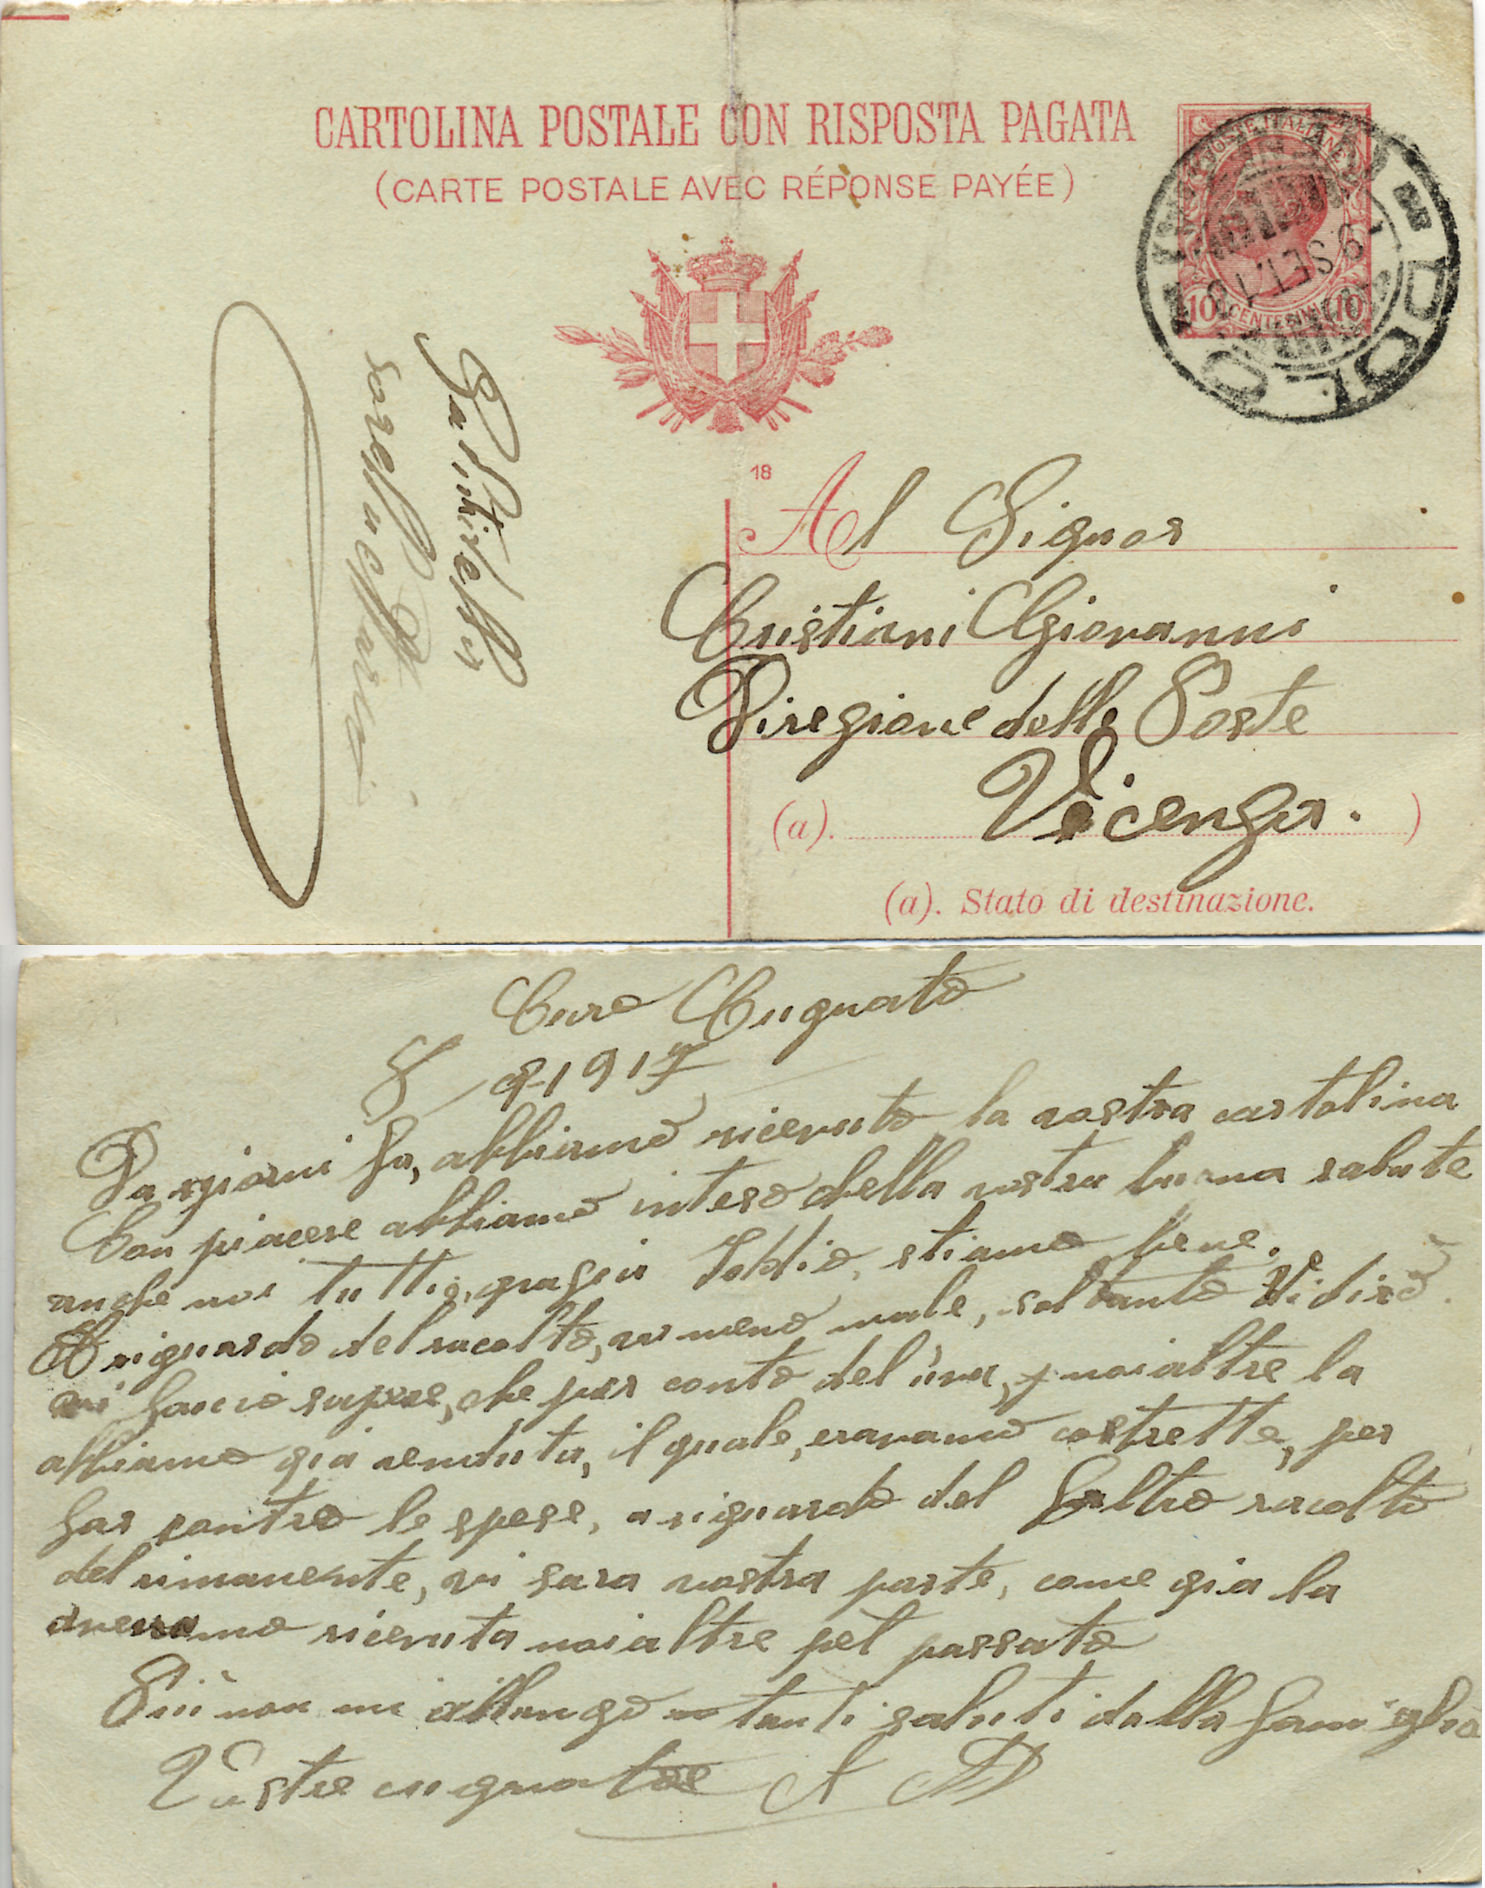 CARTOLINA POSTALE CON RISPOSTA PAGATA
(CARTE POSTALE AVEC RÉPONSE PAYÉE)
POSTE ITALIANE
10 CENTESIMI 10
DOLO
9 SET. 1
18
Al Signor
Cristiani Giovanni
Diregione delle Poste
(a). Vicenza. )
(a). Stato di destinazione.
Caro Cugnato
8/9-1917
Da giorni fa, abbiamo ricevuto la vostra cartolina
Con piacere abbiamo inteso della vostra buona salute
anche noi tutti, grazia Iddio, stiamo bene.
A riguardo del racolto, vi meno male, soltanto Vi dirò
vi faccio sapere, che per conto del'uva, noialtre la
abbiamo già venduta, il quale, eravamo costrette, per
far contro le spese, a riguardo del faltro racolto
del rimanente, vi sara vostra parte, come gia la
avevamo ricevuta noialtre pel passato
Più non mi allungo tanti saluti dalla famiglia
Vostre cugnatoe